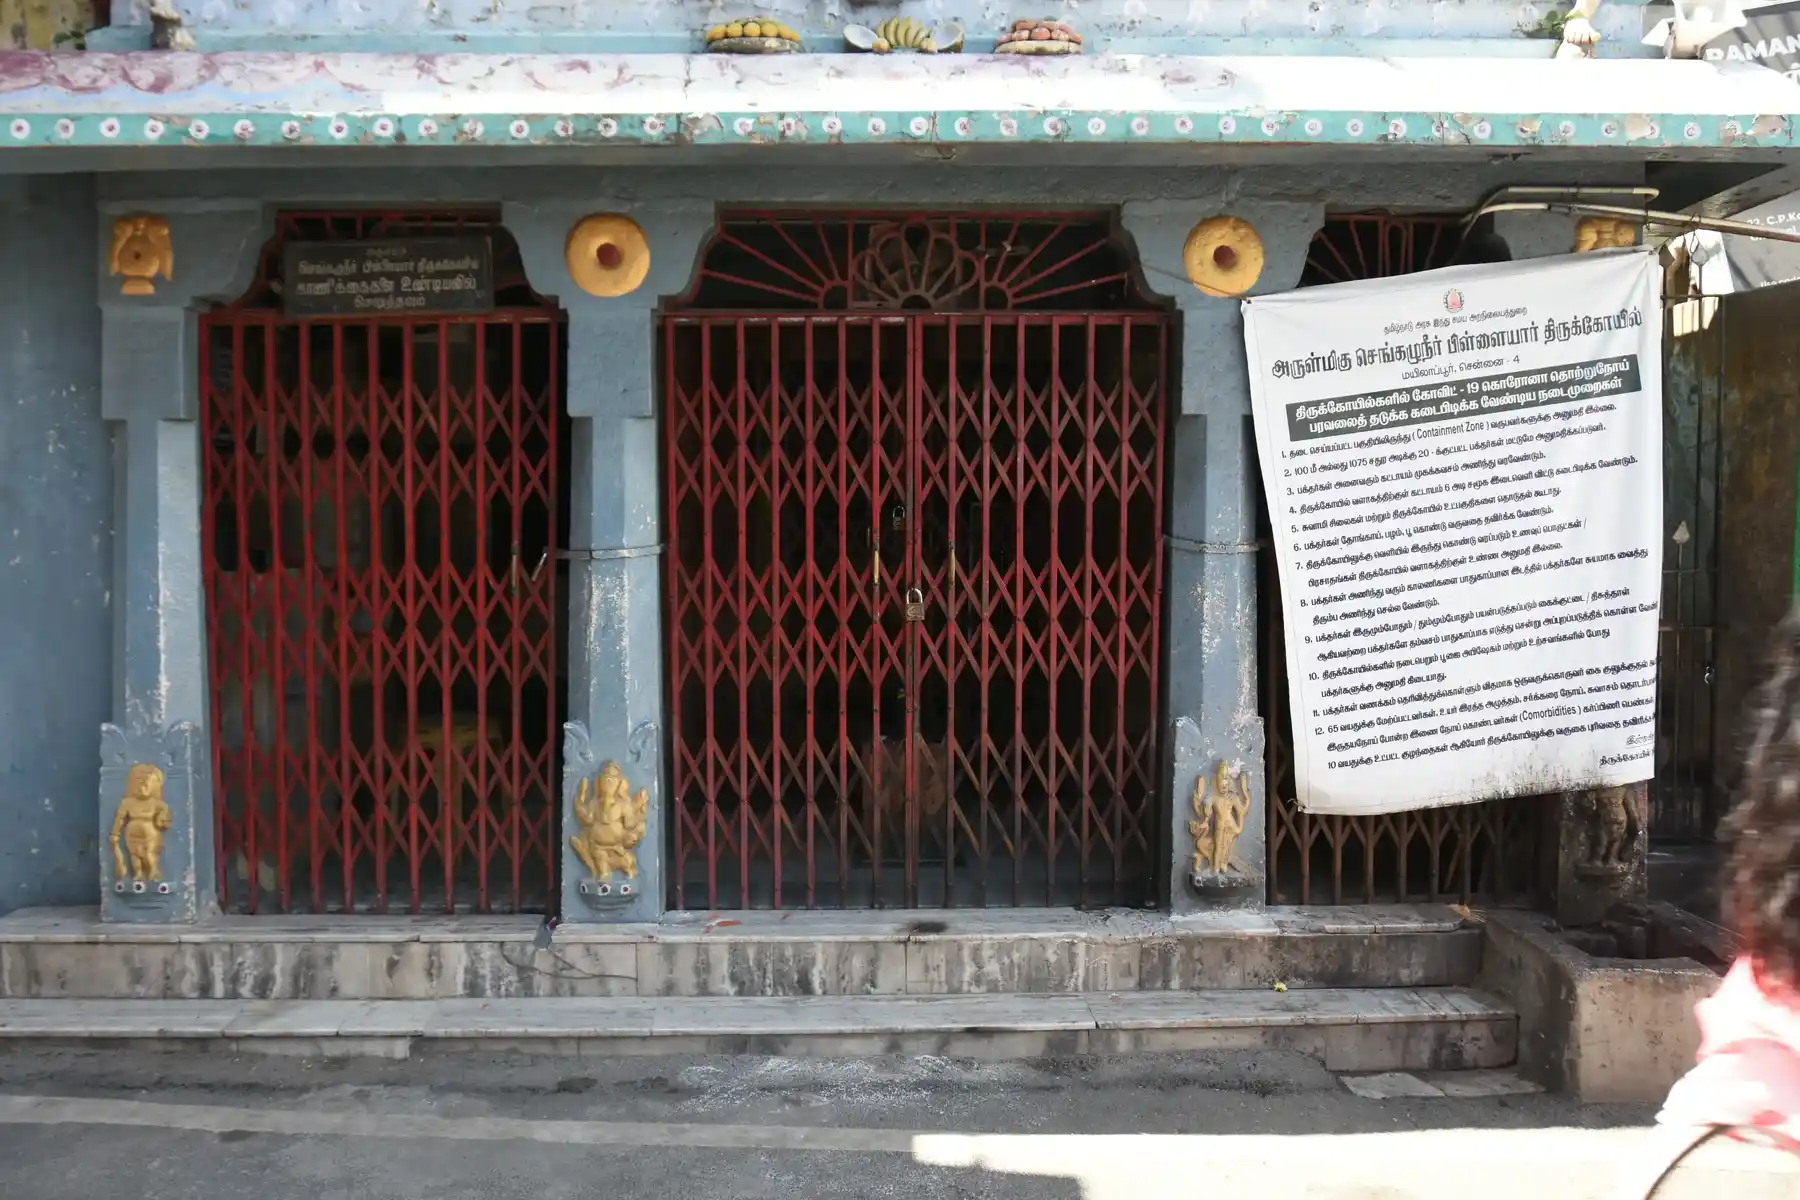 அருள்மிகு
செங்கழுநீர் பிள்ளையார் திருக்கோயில்
காணிக்கைகளை உண்டியலில்
செலுத்தவும்
தமிழ்நாடு அரசு இந்து சமய அறநிலையத்துறை
அருள்மிகு செங்கழுநீர் பிள்ளையார் திருக்கோயில்
மயிலாப்பூர், சென்னை - 4
திருக்கோயில்களில் கோவிட் - 19 கொரோனா தொற்றுநோய்
பரவலைத் தடுக்க கடைபிடிக்க வேண்டிய நடைமுறைகள்
1. தடை செய்யப்பட்ட பகுதியிலிருந்து ( Containment Zone ) வருபவர்களுக்கு அனுமதி இல்லை.
2. 100 மீ அல்லது 1075 சதுர அடிக்கு 20 - க்குட்பட்ட பக்தர்கள் மட்டுமே அனுமதிக்கப்படுவர்.
3. பக்தர்கள் அனைவரும் கட்டாயம் முகக்கவசம் அணிந்து வரவேண்டும்.
4. திருக்கோயில் வளாகத்திற்குள் கட்டாயம் 6 அடி சமூக இடைவெளி விட்டு கடைபிடிக்க வேண்டும்.
5. சுவாமி சிலைகள் மற்றும் திருக்கோயில் உட்பகுதிகளை தொடுதல் கூடாது.
6. பக்தர்கள் தேங்காய், பழம், பூ கொண்டு வருவதை தவிர்க்க வேண்டும்.
7. திருக்கோயிலுக்கு வெளியில் இருந்து கொண்டு வரப்படும் உணவுப் பொருட்கள் /
பிரசாதங்கள் திருக்கோயில் வளாகத்திற்குள் உண்ண அனுமதி இல்லை.
8. பக்தர்கள் அணிந்து வரும் காலணிகளை பாதுகாப்பான இடத்தில் பக்தர்களே சுயமாக வைத்து
திரும்ப அணிந்து செல்ல வேண்டும்.
9. பக்தர்கள் இருமும்போதும் / தும்மும்போதும் பயன்படுத்தப்படும் கைக்குட்டை / திசுத்தாள்
ஆகியவற்றை பக்தர்களே தம்வசம் பாதுகாப்பாக எடுத்து சென்று அப்புறப்படுத்திக் கொள்ள
10. திருக்கோயில்களில் நடைபெறும் பூஜை அபிஷேகம் மற்றும் உற்சவங்களில் போது
பக்தர்களுக்கு அனுமதி கிடையாது.
11. பக்தர்கள் வணக்கம் தெரிவித்துக்கொள்ளும் விதமாக ஒருவருக்கொருவர் கை குலுக்குதல்
12. 65 வயதுக்கு மேற்பட்டவர்கள், உயர் இரத்த அழுத்தம், சர்க்கரை நோய், சுவாசம்
இருதயநோய் போன்ற இணை நோய் கொண்டவர்கள் (Comorbidities ) கர்ப்பிணி பெண்கள்
10 வயதுக்கு உட்பட்ட குழந்தைகள் ஆகியோர் திருக்கோயிலுக்கு வருகை புரிவதை
திருக்கோயில்
RAMAN